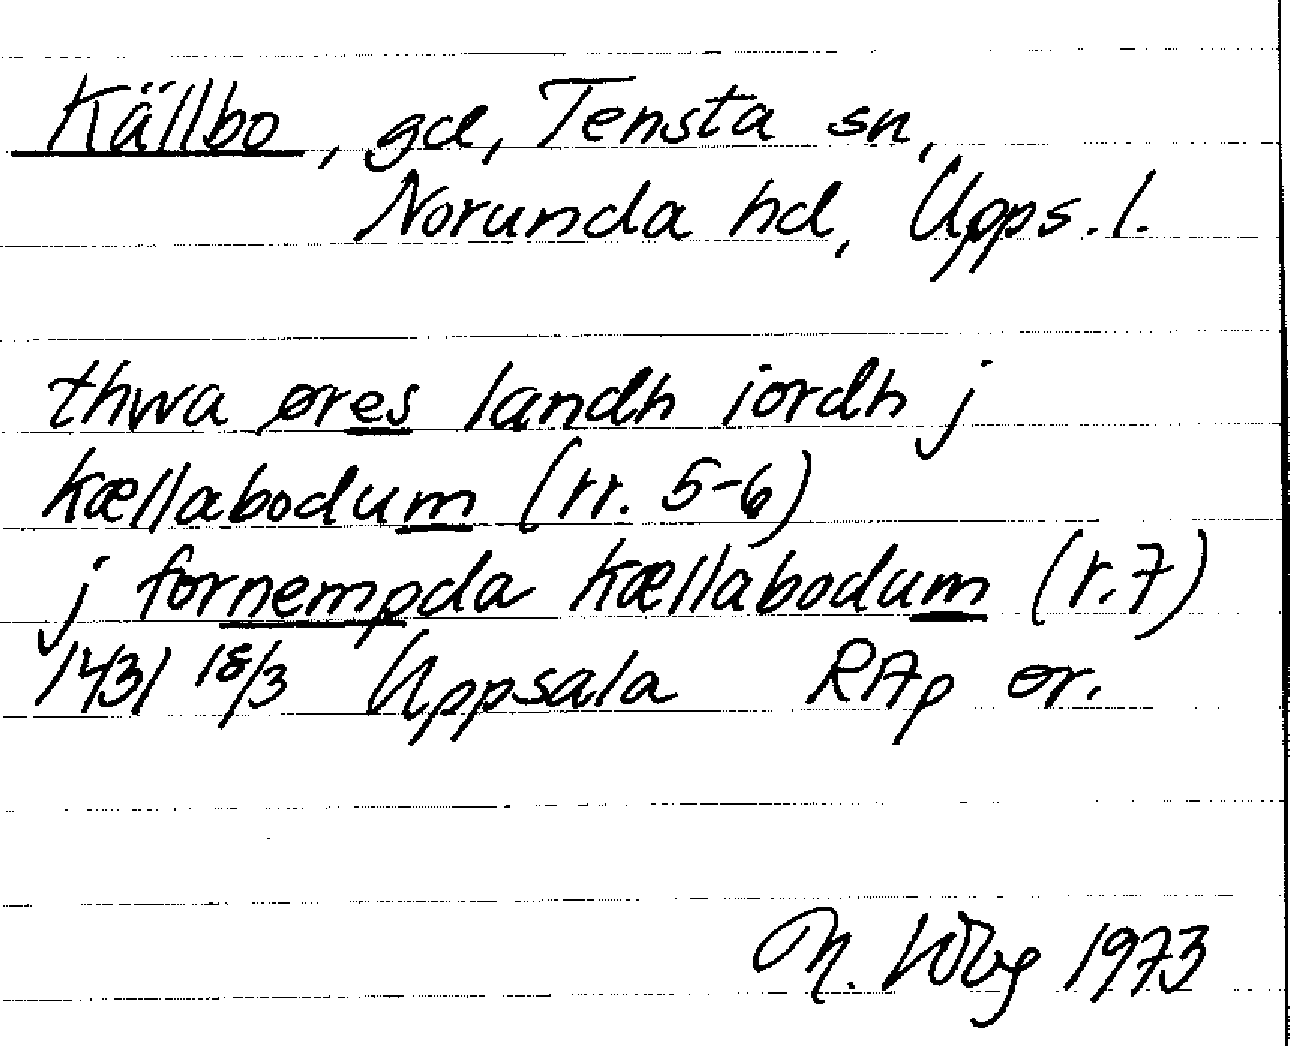 Källbo, gd, Tensta sn,
Norunda hd, Upps. l.
thwa øres landh iordh j
kællabodum (rr. 5-6)
j fornempda kællabodum (r. 7)
1431 18/3 Uppsala RAp or.
1973